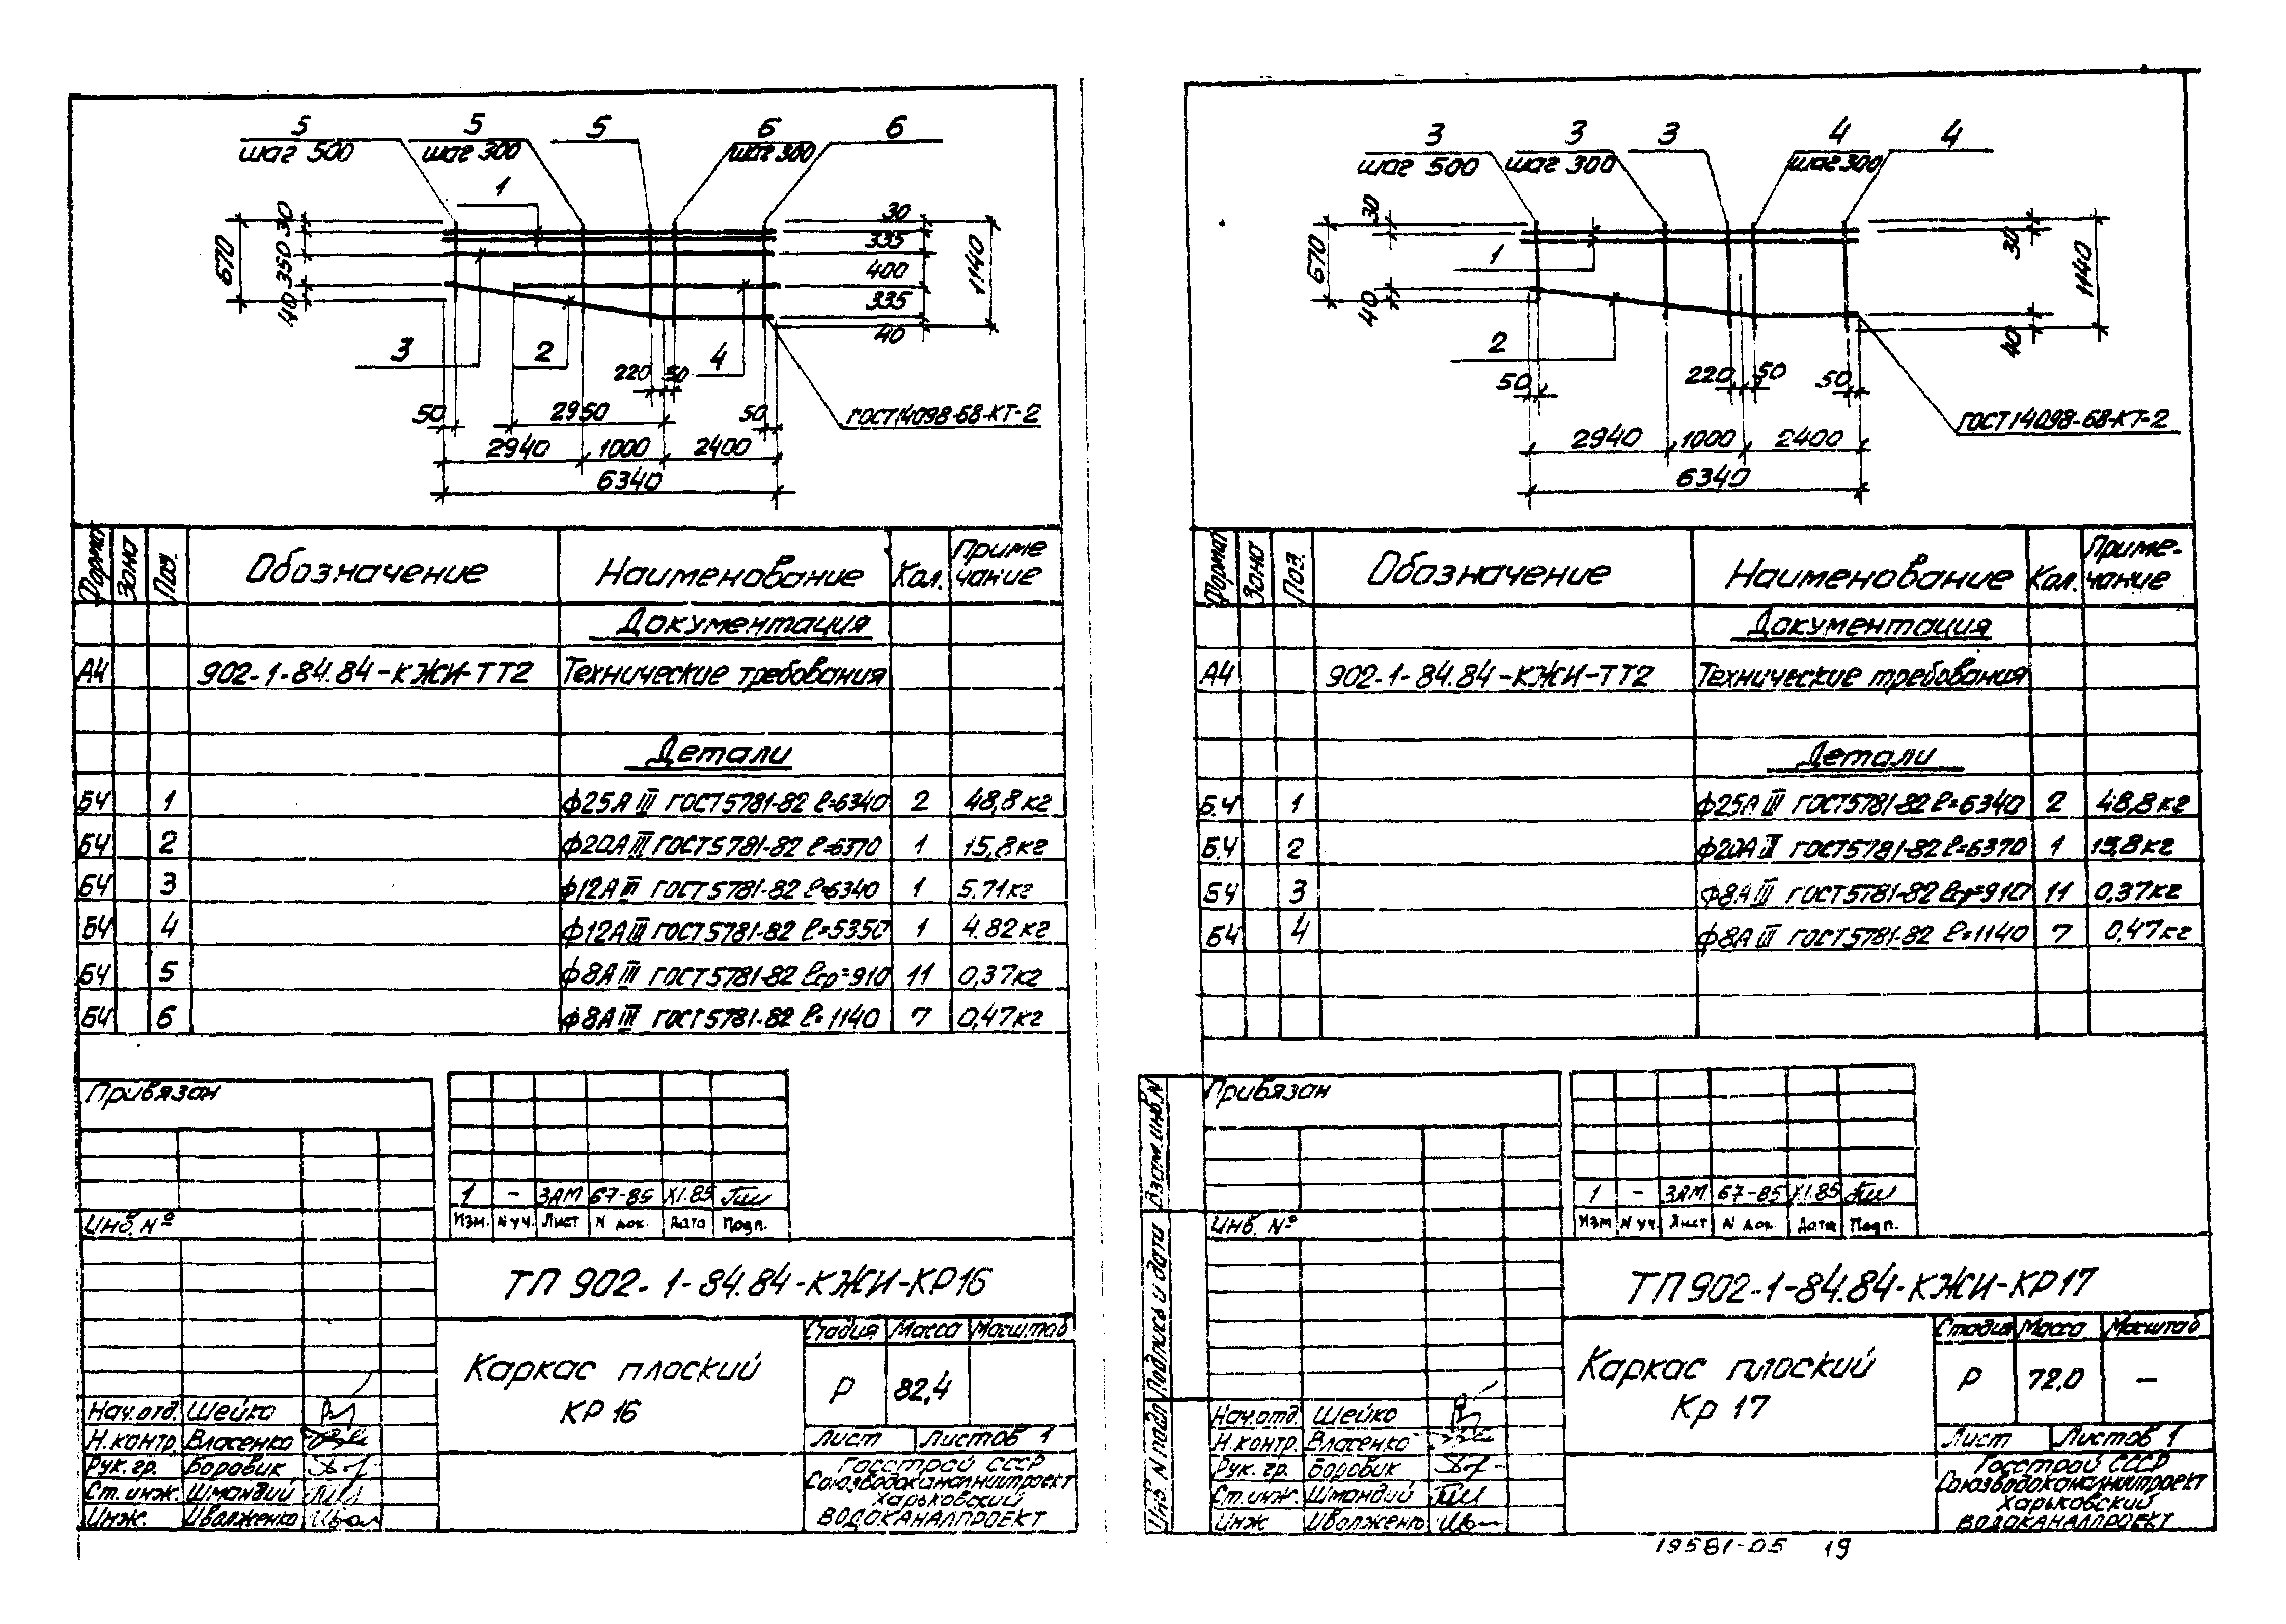 5 5 5 6 6
шаг 500 шаг 300 шаг 300
1
670 30 350 40
30
335
400
335
40
1140
3 2 4
220 50
50 2950 50
ГОСТ14098-68-КТ-2
2940 1000 2400
6340
Формат Зона Поз. Обозначение Наименование Кол. Приме
чание
Документация
А4 902-1-84.84-КЖИ-ТТ2 Технические требования
Детали
БЧ 1 ф25А III ГОСТ5781-82 ℓ=6340 2 48,8 кг
БЧ 2 ф20А III ГОСТ5781-82 ℓ=6370 1 15,8 кг
БЧ 3 ф12А III ГОСТ5781-82 ℓ=6340 1 5.71 кг
БЧ 4 ф12А III ГОСТ5781-82 ℓ=5350 1 4.82 кг
БЧ 5 ф8А III ГОСТ5781-82 ℓср=910 11 0,37 кг
БЧ 6 ф8А III ГОСТ5781-82 ℓ=1140 7 0,47 кг
Привязан
Инв. №
1 - ЗАМ 67-85 XI.85
Изм. N уч. Лист N док. Дата Подп.
ТП 902-1-84.84-КЖИ-КР16
Каркас плоский
КР 16
Стадия Масса Масштаб
Р 82,4
Лист Листов 1
Нач.отд. Шейко
Н.контр. Власенко
Рук. гр. Боровик
Ст. инж. Шмандий
Инж. Иволженко
Госстрой СССР
Союзводоканалниипроект
Харьковский
ВОДОКАНАЛПРОЕКТ
3 3 3 4 4
шаг 500 шаг 300 шаг 300
670 30 40
1
2
30
1140
40
50 220 50 50
ГОСТ14098-68-КТ-2
2940 1000 2400
6340
Формат Зона Поз. Обозначение Наименование Кол. Приме-
чание
Документация
А4 902-1-84.84-КЖИ-ТТ2 Технические требования
Детали
Б.Ч 1 ф25А III ГОСТ5781-82 ℓ=6340 2 48,8 кг
Б.Ч 2 ф20А III ГОСТ5781-82 ℓ=6370 1 15,8 кг
БЧ 3 ф8А III ГОСТ5781-82 ℓср=910 11 0,37 кг
БЧ 4 ф8А III ГОСТ5781-82 ℓ=1140 7 0,47 кг
Взам. инв. N
Подпись и дата
Инв. N подл
Привязан
Инв. №
1 - ЗАМ 67-85 XI.85
Изм N уч. Лист N док. Дата Подп.
ТП 902-1-84.84-КЖИ-КР17
Каркас плоский
Кр 17
Стадия Масса Масштаб
Р 72.0 —
Лист Листов 1
Нач.отд. Шейко
Н.контр. Власенко
Рук. гр. Боровик
Ст.инж. Шмандий
Инж Иволженко
Госстрой СССР
Союзводоканалниипроект
Харьковский
ВОДОКАНАЛПРОЕКТ
19581-05 19